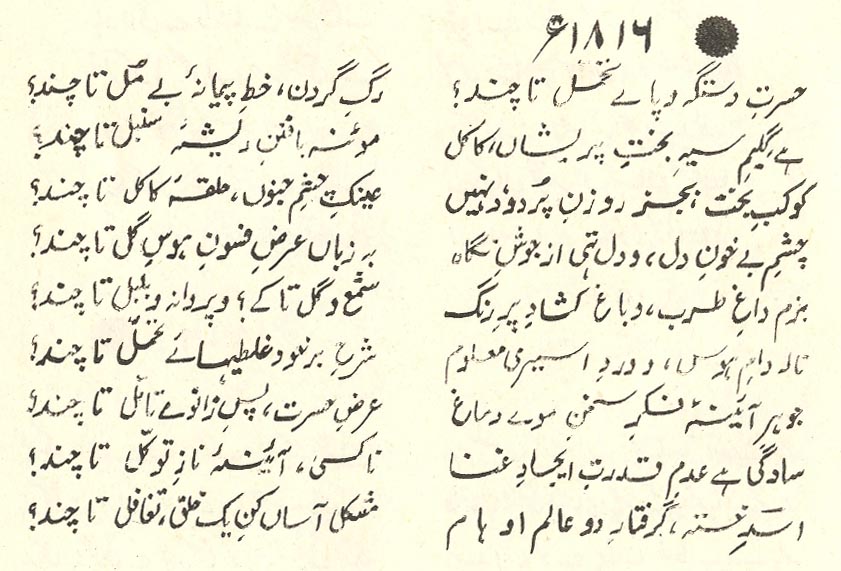 ۱۸۱۶ء
حسرتِ دستگہ و پاے تحمل تا چند؟ رگِ گردن، خطِ پیمانۂ بے مُل تا چند؟
ہے گلیمِ سیہِ بختِ پریشاں، کاکل موئنہ بافتنِ ریشۂ سنبل تا چند؟
کوکبِ بخت بجز روزنِ پُردود نہیں عینکِ چشمِ جنوں، حلقۂ کاکل تا چند؟
چشمِ بے خونِ دل، و دل تہی از جوشِ نگاہ بہ زباں عرضِ فسونِ ہوسِ گل تا چند؟
بزم داغِ طرب، و باغ کشادِ پرِ رنگ شمع و گل تا کے؟ و پروانہ و بلبل تا چند؟
نالہ دامِ ہوس، و دردِ اسیری معلوم شرحِ بر خود غلطیہائے تحمّل تا چند؟
جوہرِ آئینۂ فکرِ سخن موے دماغ عرضِ حسرت، پسِ زانوے تامّل تا چند؟
سادگی ہے عدمِ قدرتِ ایجادِ غنا ناکسی، آئینۂ نازِ توکّل تا چند؟
اسدِ خستہ، گرفتارِ دو عالم اوہام مشکل آساں کنِ یک خلق، تغافل تا چند؟